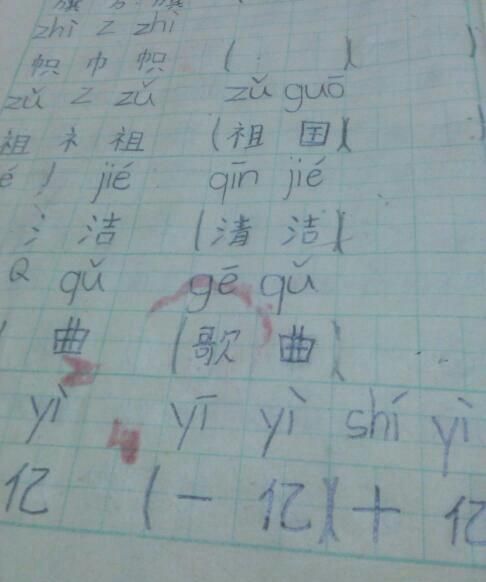 旗 方 旗
zhì Z zhì
帜 巾 帜 ( )( )
zǔ Z zǔ zǔ guō
祖 礻 祖 (祖 国)( )
é J jié qīn jié
氵 洁 (清 洁)(
Q qǔ gē qǔ
曲 (歌 曲)
yì yī yì shí yì
亿 (一 亿)(十 亿